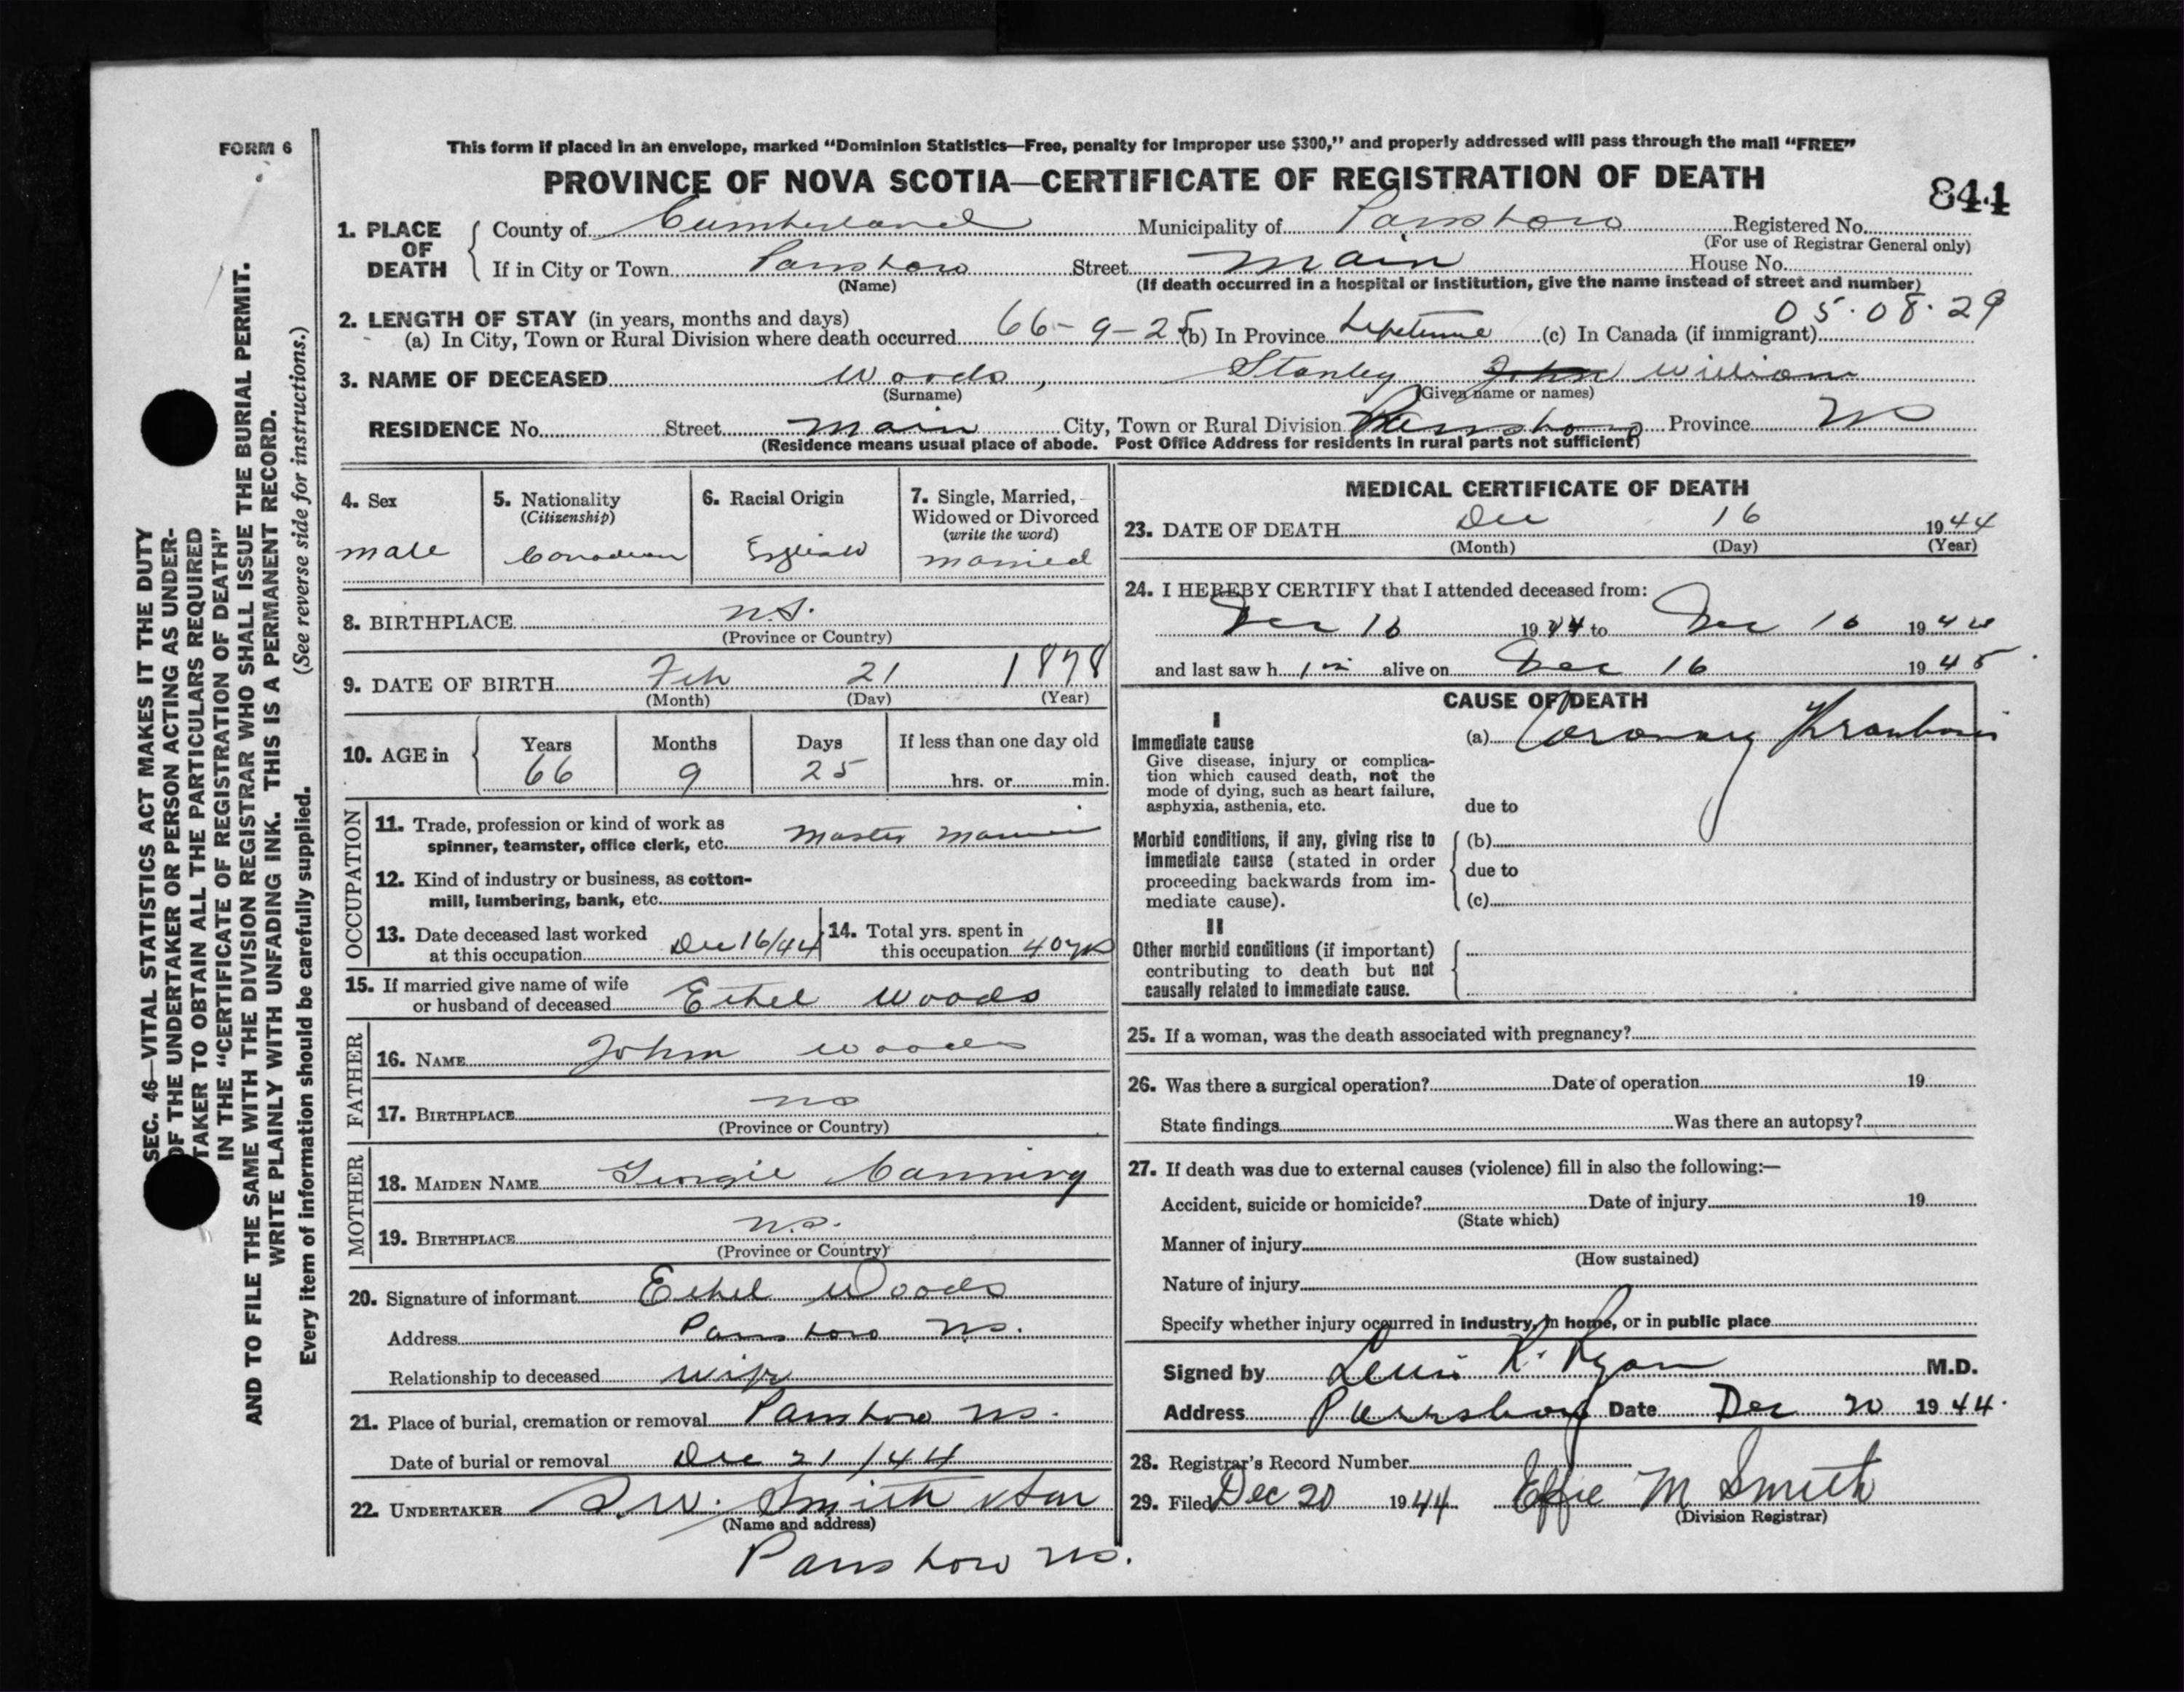 FORM 6
This form if placed in an envelope, marked "Dominion Statistics—Free, penalty for improper use $300," and properly addressed will pass through the mail "FREE"
PROVINCE OF NOVA SCOTIA—CERTIFICATE OF REGISTRATION OF DEATH
844
1. PLACE OF DEATH County of Cumberland Municipality of Parrsboro Registered No.
(For use of Registrar General only)
If in City or Town Parrsboro Street Main House No.
(Name) (If death occurred in a hospital or institution, give the name instead of street and number)
2. LENGTH OF STAY (in years, months and days) 05.08.29
(a) In City, Town or Rural Division where death occurred 66-9-25 (b) In Province Lifetime (c) In Canada (if immigrant)
3. NAME OF DECEASED Woods, Stanley John William
(Surname) (Given name or names)
RESIDENCE No. Street Main City, Town or Rural Division Parrsboro Province NS
(Residence means usual place of abode. Post Office Address for residents in rural parts not sufficient)
4. Sex
male
5. Nationality
(Citizenship)
Canadian
6. Racial Origin
English
7. Single, Married,
Widowed or Divorced
(write the word)
married
8. BIRTHPLACE N.S.
(Province or Country)
9. DATE OF BIRTH Feb 21 1878
(Month) (Day) (Year)
10. AGE in Years Months Days If less than one day old
66 9 25 hrs. or min.
OCCUPATION
11. Trade, profession or kind of work as
spinner, teamster, office clerk, etc. Master Mariner
12. Kind of industry or business, as cotton-
mill, lumbering, bank, etc.
13. Date deceased last worked
at this occupation Dec 16/44
14. Total yrs. spent in
this occupation 40 yrs
15. If married give name of wife
or husband of deceased Ethel Woods
FATHER
16. NAME John Woods
17. BIRTHPLACE NS
(Province or Country)
MOTHER
18. MAIDEN NAME Georgie Canning
19. BIRTHPLACE N.S.
(Province or Country)
20. Signature of informant Ethel Woods
Address Parrsboro NS.
Relationship to deceased wife
21. Place of burial, cremation or removal Parrsboro NS.
Date of burial or removal Dec 21/44
22. UNDERTAKER Smith & Son
(Name and address)
Parrsboro NS.
MEDICAL CERTIFICATE OF DEATH
23. DATE OF DEATH Dec 16 1944
(Month) (Day) (Year)
24. I HEREBY CERTIFY that I attended deceased from:
Dec 16 1944 to Dec 16 1944
and last saw h im alive on Dec 16 1945
CAUSE OF DEATH
I
Immediate cause (a) Coronary Thrombosis
Give disease, injury or complica-
tion which caused death, not the
mode of dying, such as heart failure,
asphyxia, asthenia, etc. due to
Morbid conditions, if any, giving rise to (b)
immediate cause (stated in order
proceeding backwards from im- due to
mediate cause). (c)
II
Other morbid conditions (if important)
contributing to death but not
causally related to immediate cause.
25. If a woman, was the death associated with pregnancy?
26. Was there a surgical operation? Date of operation 19
State findings Was there an autopsy?
27. If death was due to external causes (violence) fill in also the following:—
Accident, suicide or homicide? Date of injury 19
(State which)
Manner of injury
(How sustained)
Nature of injury
Specify whether injury occurred in industry, in home, or in public place
Signed by R. Ryan M.D.
Address Parrsboro Date Dec 20 1944.
28. Registrar's Record Number
29. Filed Dec 20 1944 Effie M Smith
(Division Registrar)
SEC. 46—VITAL STATISTICS ACT MAKES IT THE DUTY
OF THE UNDERTAKER OR PERSON ACTING AS UNDER-
TAKER TO OBTAIN ALL THE PARTICULARS REQUIRED
IN THE "CERTIFICATE OF REGISTRATION OF DEATH"
AND TO FILE THE SAME WITH THE DIVISION REGISTRAR WHO SHALL ISSUE THE BURIAL PERMIT.
WRITE PLAINLY WITH UNFADING INK. THIS IS A PERMANENT RECORD.
Every item of information should be carefully supplied. (See reverse side for instructions.)